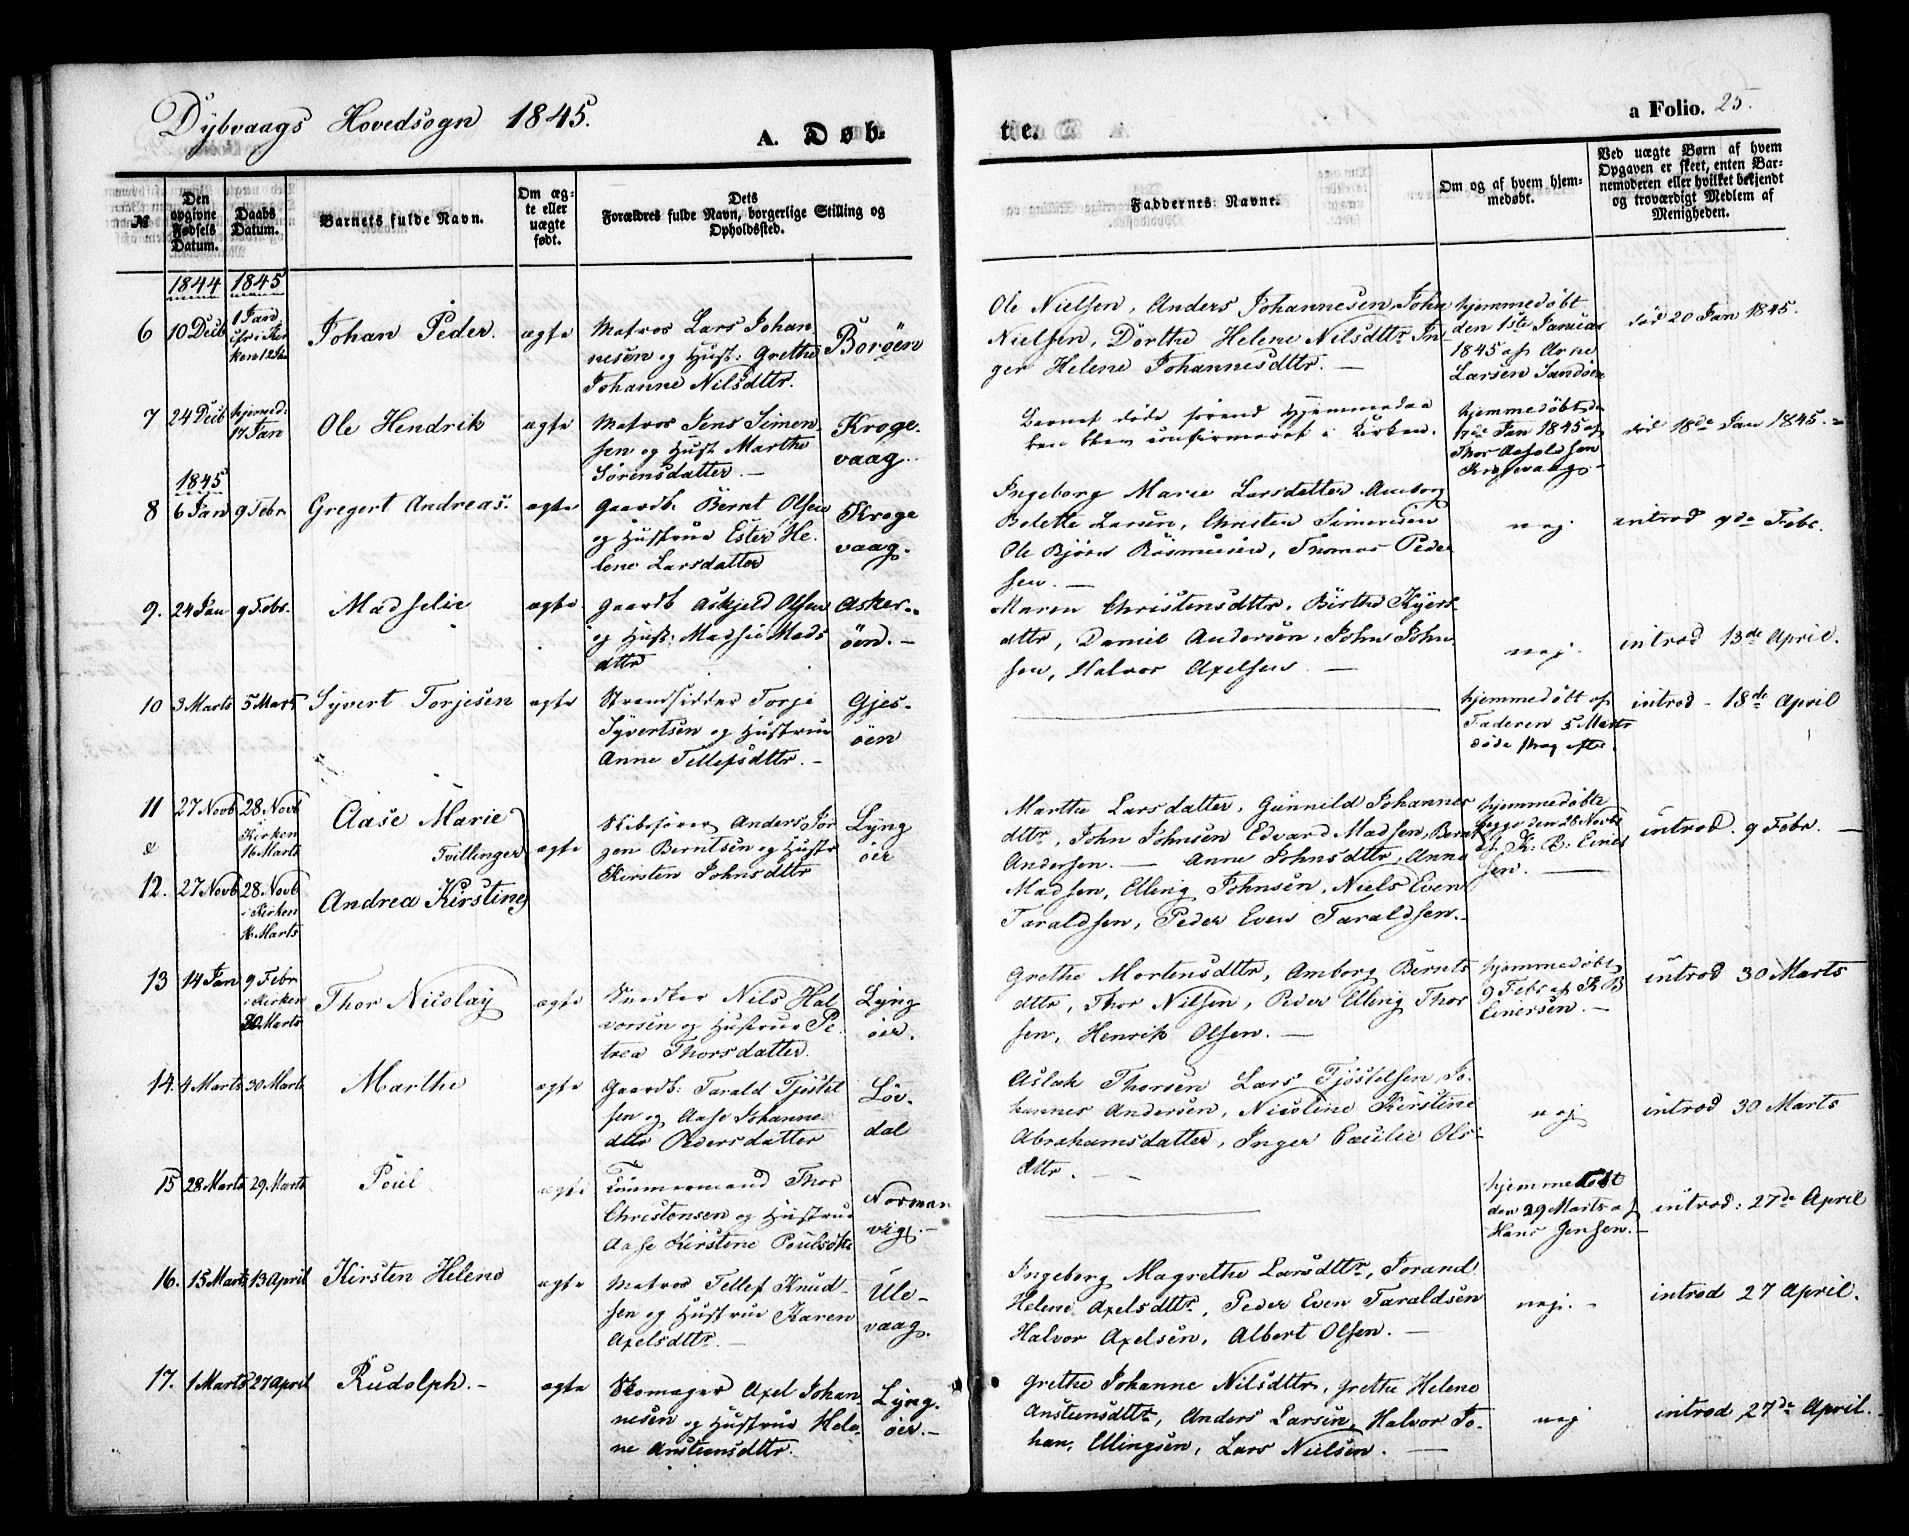 Dybvaags Hovedsogn 1845.
A. Døb-
te.
a Folio. 25.
№
Den opgivne Fødsels Datum.
Daabs Datum.
Barnets fulde Navn.
Om ægte eller uægte født.
Dets Forældres fulde Navn, borgerlige Stilling og Opholdssted.
Faddernes Navne.
Om og af hvem hjemmedøbt.
Ved uægte Børn af hvem Opgaven er skeet, enten Barnemoderen eller hvilket bekjendt og troværdigt Medlem af Menigheden.
1844 1845
6 10 Decb 1 Jan
Johan Peder. ægte
Matros Lars Johan
nesen og Hust: Grethe
Johanne Nilsdttr.
Boröen
Ole Nielsen, Anders Johannesen, John
Nielsen, Dorthe Helene Nilsdttr In-
ger Helene Johannesdttr. —
hjemmedøbt
den 1ste Januar
1845 af Arne
Larsen Sandöen
död 20 Jan 1845.
7 24 Decb hjemed:
17 Jan
Ole Hendrik ægte
Matros Jens Simon-
sen og Hust Marthe
Sörensdatter. —
Kroge-
vaag.
Barnet döde förend Hjemmedaa
ben blev confirmeret i Kirken.
hjemmedøbt de
17de Jan 1845 af
Thor Aasoldsen
Krogevaag -
död 18de Jan 1845. -
1845
8 6 Jan 9 Febr
Gregert Andreas. ægte
Gaardb. Bernt Olsen
og Hustrue Ester He-
lene Larsdatter
Kroge
vaag.
Ingeborg Marie Larsdatter Amborg
Bolette Larsen, Christen Simonsen
Ole Björn Rasmusen, Thomas Peder
sen. —
nej.
introd 9de Febr.
9. 24 Jan 9 Febr.
Madselie ægte
Gaardb Askjeld Olsen
og Hust: Madsie Mads
dttr
Asker-
öen. -
Maren Christensdttr. Birthe Kjers
dttr, Daniel Andersen, John John
sen, Halvor Axelsen. —
nej.
introd 13de April.
10 3 Marts 5 Marts
Syvert Torjesen ægte
Strandsidder Torje
Syvertsen og Hustrue
Anne Tellefsdttr. -
Gjes-
öen
hjemmedøbt af
Faderen 5 Marts
döde strag efter.
introd - 18de April
11 27 Novb 28 Novb
i Kirken
16 Marts
Aase Marie
Tvillinger ægte
Skibsförer Anders Jör
gen Berntsen og Hustr
Kirsten Johnsdttr
Lyng
öer
Marthe Larsdatter, Gunnild Johannes
dttr, John Johnsen Edvard Madsen, Bernt
Andersen. — Anne Johnsdttr, Anne
Madsen, Elling Johnsen, Niels Even
Taraldsen, Peder Even Taraldsen. -
hjemmedøbte
begge den 28 Novbr
af K: B: Einer
sen. —
introd. 9 Febr. —
&
12. 27 Novb 28 Novb
i Kirken
16 Marts
Andrea Kirstine
13 14 Jan 9 Febr
i Kirken
30 Marts
Thor Nicolay ægte
Snedker Nils Hal
vorsen og Hustrue Pe-
trea Thorsdatter.
Lyng
öer.
Grethe Mortensdttr, Amborg Bernts
dttr, Thor Nilsen, Peder Elling Thor
sen, Henrik Olsen. —
hjemmedøbt
9 Febr af K B
Einersen. -
introd 30 Marts
14. 4 Marts 30 Marts
Marthe ægte
Gaardb: Tarald Tjöstel
sen og Aase Johanne
dttr Pedersdatter
Löv-
dal
Aslak Thorsen Lars Tjöstelsen Jo-
hannes Andersen, Nicoline Kirstine
Abrahamsdatter, Inger Cæcilie Ols-
dttr. —
nej
introd 30 Marts
15 28 Marts 29 Marts
Poul ægte
Tömmermand Thor
Christensen og Hustrue
Aase Kirstine Poulsdtr
Norman
vig. -
hjemmedøbt
den 29 Marts af
Hans Jensen. -
introd: 27de April
16. 15 Marts 13 April
Kirsten Helene ægte
Matros Tellef Knud-
sen og Hustrue Karen
Axelsdttr. —
Ule-
vaag.
Ingeborg Magrethe Larsdttr, Torand
Helene Axelsdttr, Peder Even Taraldsen
Halvor Axelsen, Albert Olsen. —
nej. -
introd 27 April.
17. 1 Marts 27 April
Rudolph. - ægte
Skomager Axel Johan
nesen og Hustrue Hele-
ne Anstensdttr.
Lyng-
öer. -
Grethe Johanne Nilsdttr, Grethe Helene
Anstensdttr, Anders Larsen, Halvor Jo-
han, Ellingsen, Lars Nielsen. —
nej
introd 27de April.